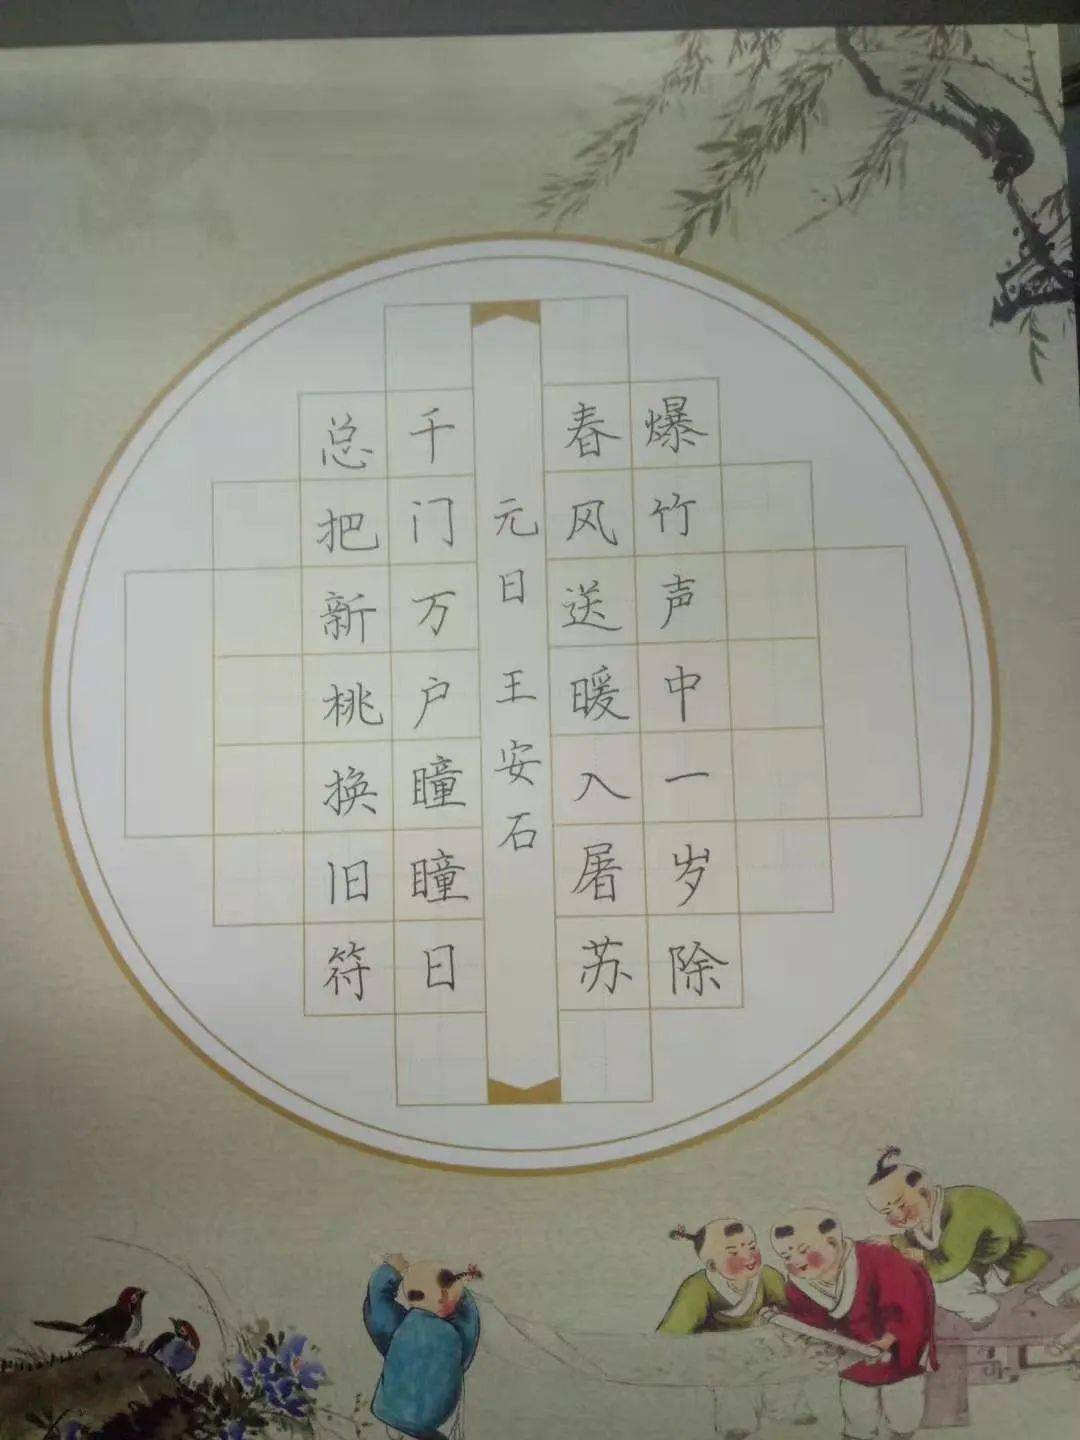 元日 王安石
爆竹声中一岁除
春风送暖入屠苏
千门万户瞳瞳日
总把新桃换旧符